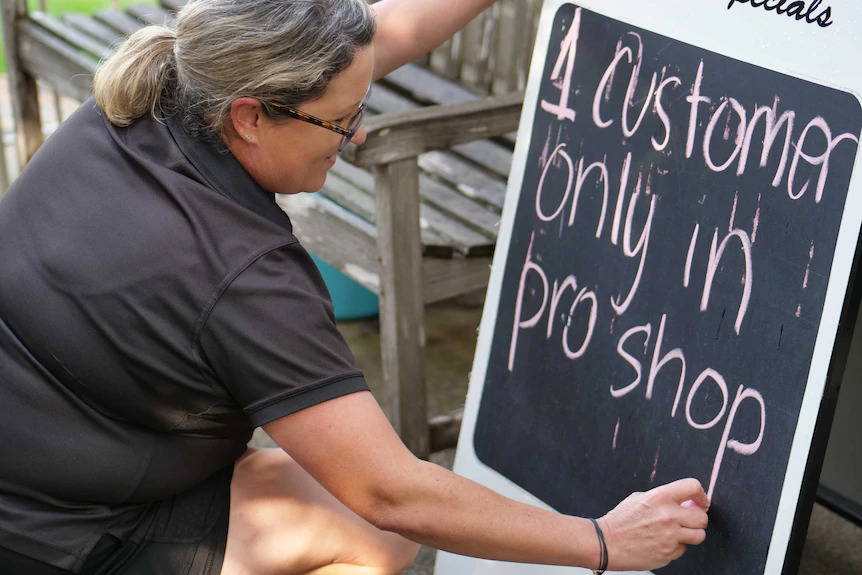 Specials
1 customer
only in
pro shop